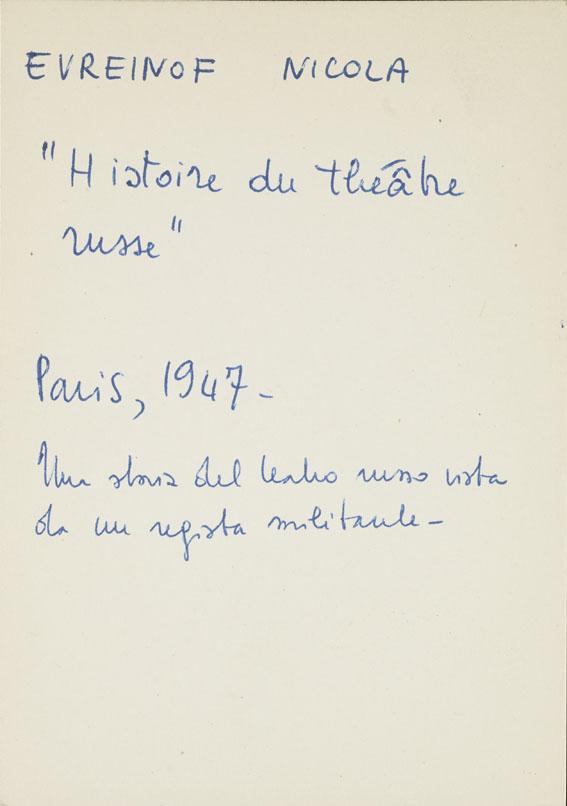 EVREINOF NICOLA
"Histoire du théâtre
russe"
Paris, 1947 -
Una storia del teatro russo vista
da un regista militante -